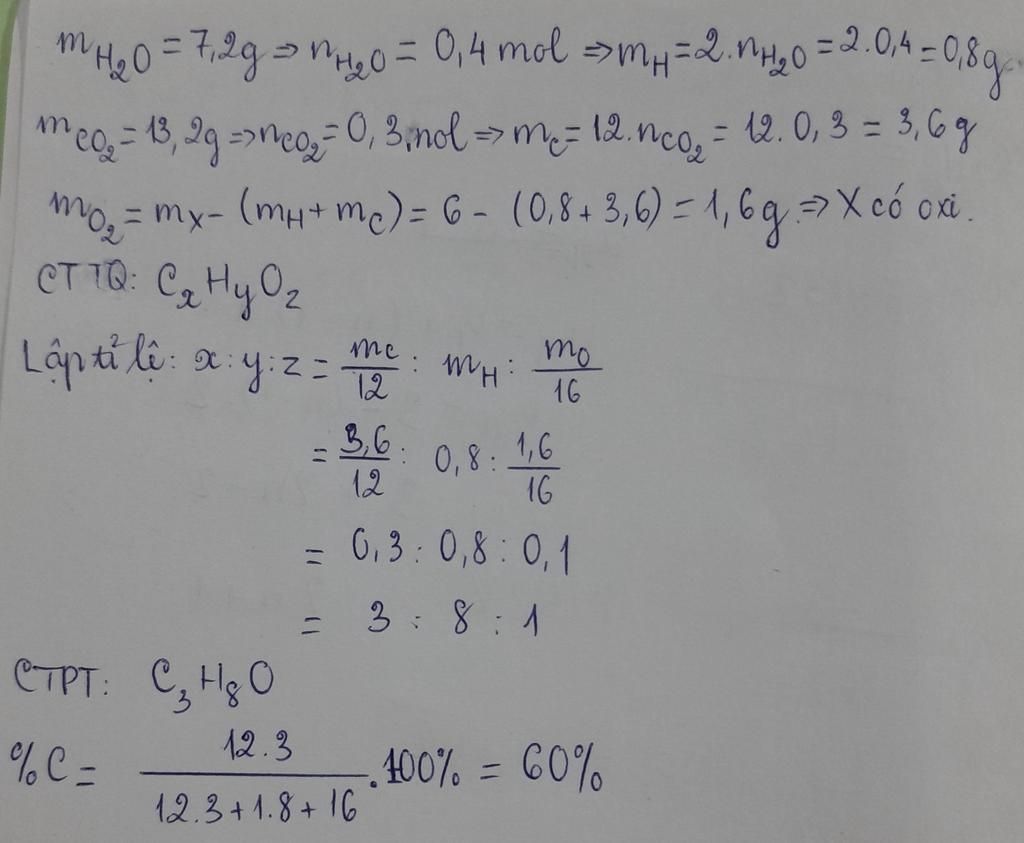 mH₂O = 7,2g ⇒ nH₂O = 0,4 mol ⇒ mH = 2.nH₂O = 2.0,4 = 0,8g
mCO₂ = 13,2g ⇒ nCO₂ = 0,3 mol ⇒ mC = 12.nCO₂ = 12.0,3 = 3,6g
mO₂ = mX - (mH + mC) = 6 - (0,8 + 3,6) = 1,6g ⇒ X có oxi.
CTTQ: CxHyOz
Lập tỉ lệ: x : y : z = mC/12 : mH : mO/16
= 3,6/12 : 0,8 : 1,6/16
= 0,3 : 0,8 : 0,1
= 3 : 8 : 1
CTPT: C₃H₈O
%C = 12.3/(12.3 + 1.8 + 16) . 100% = 60%